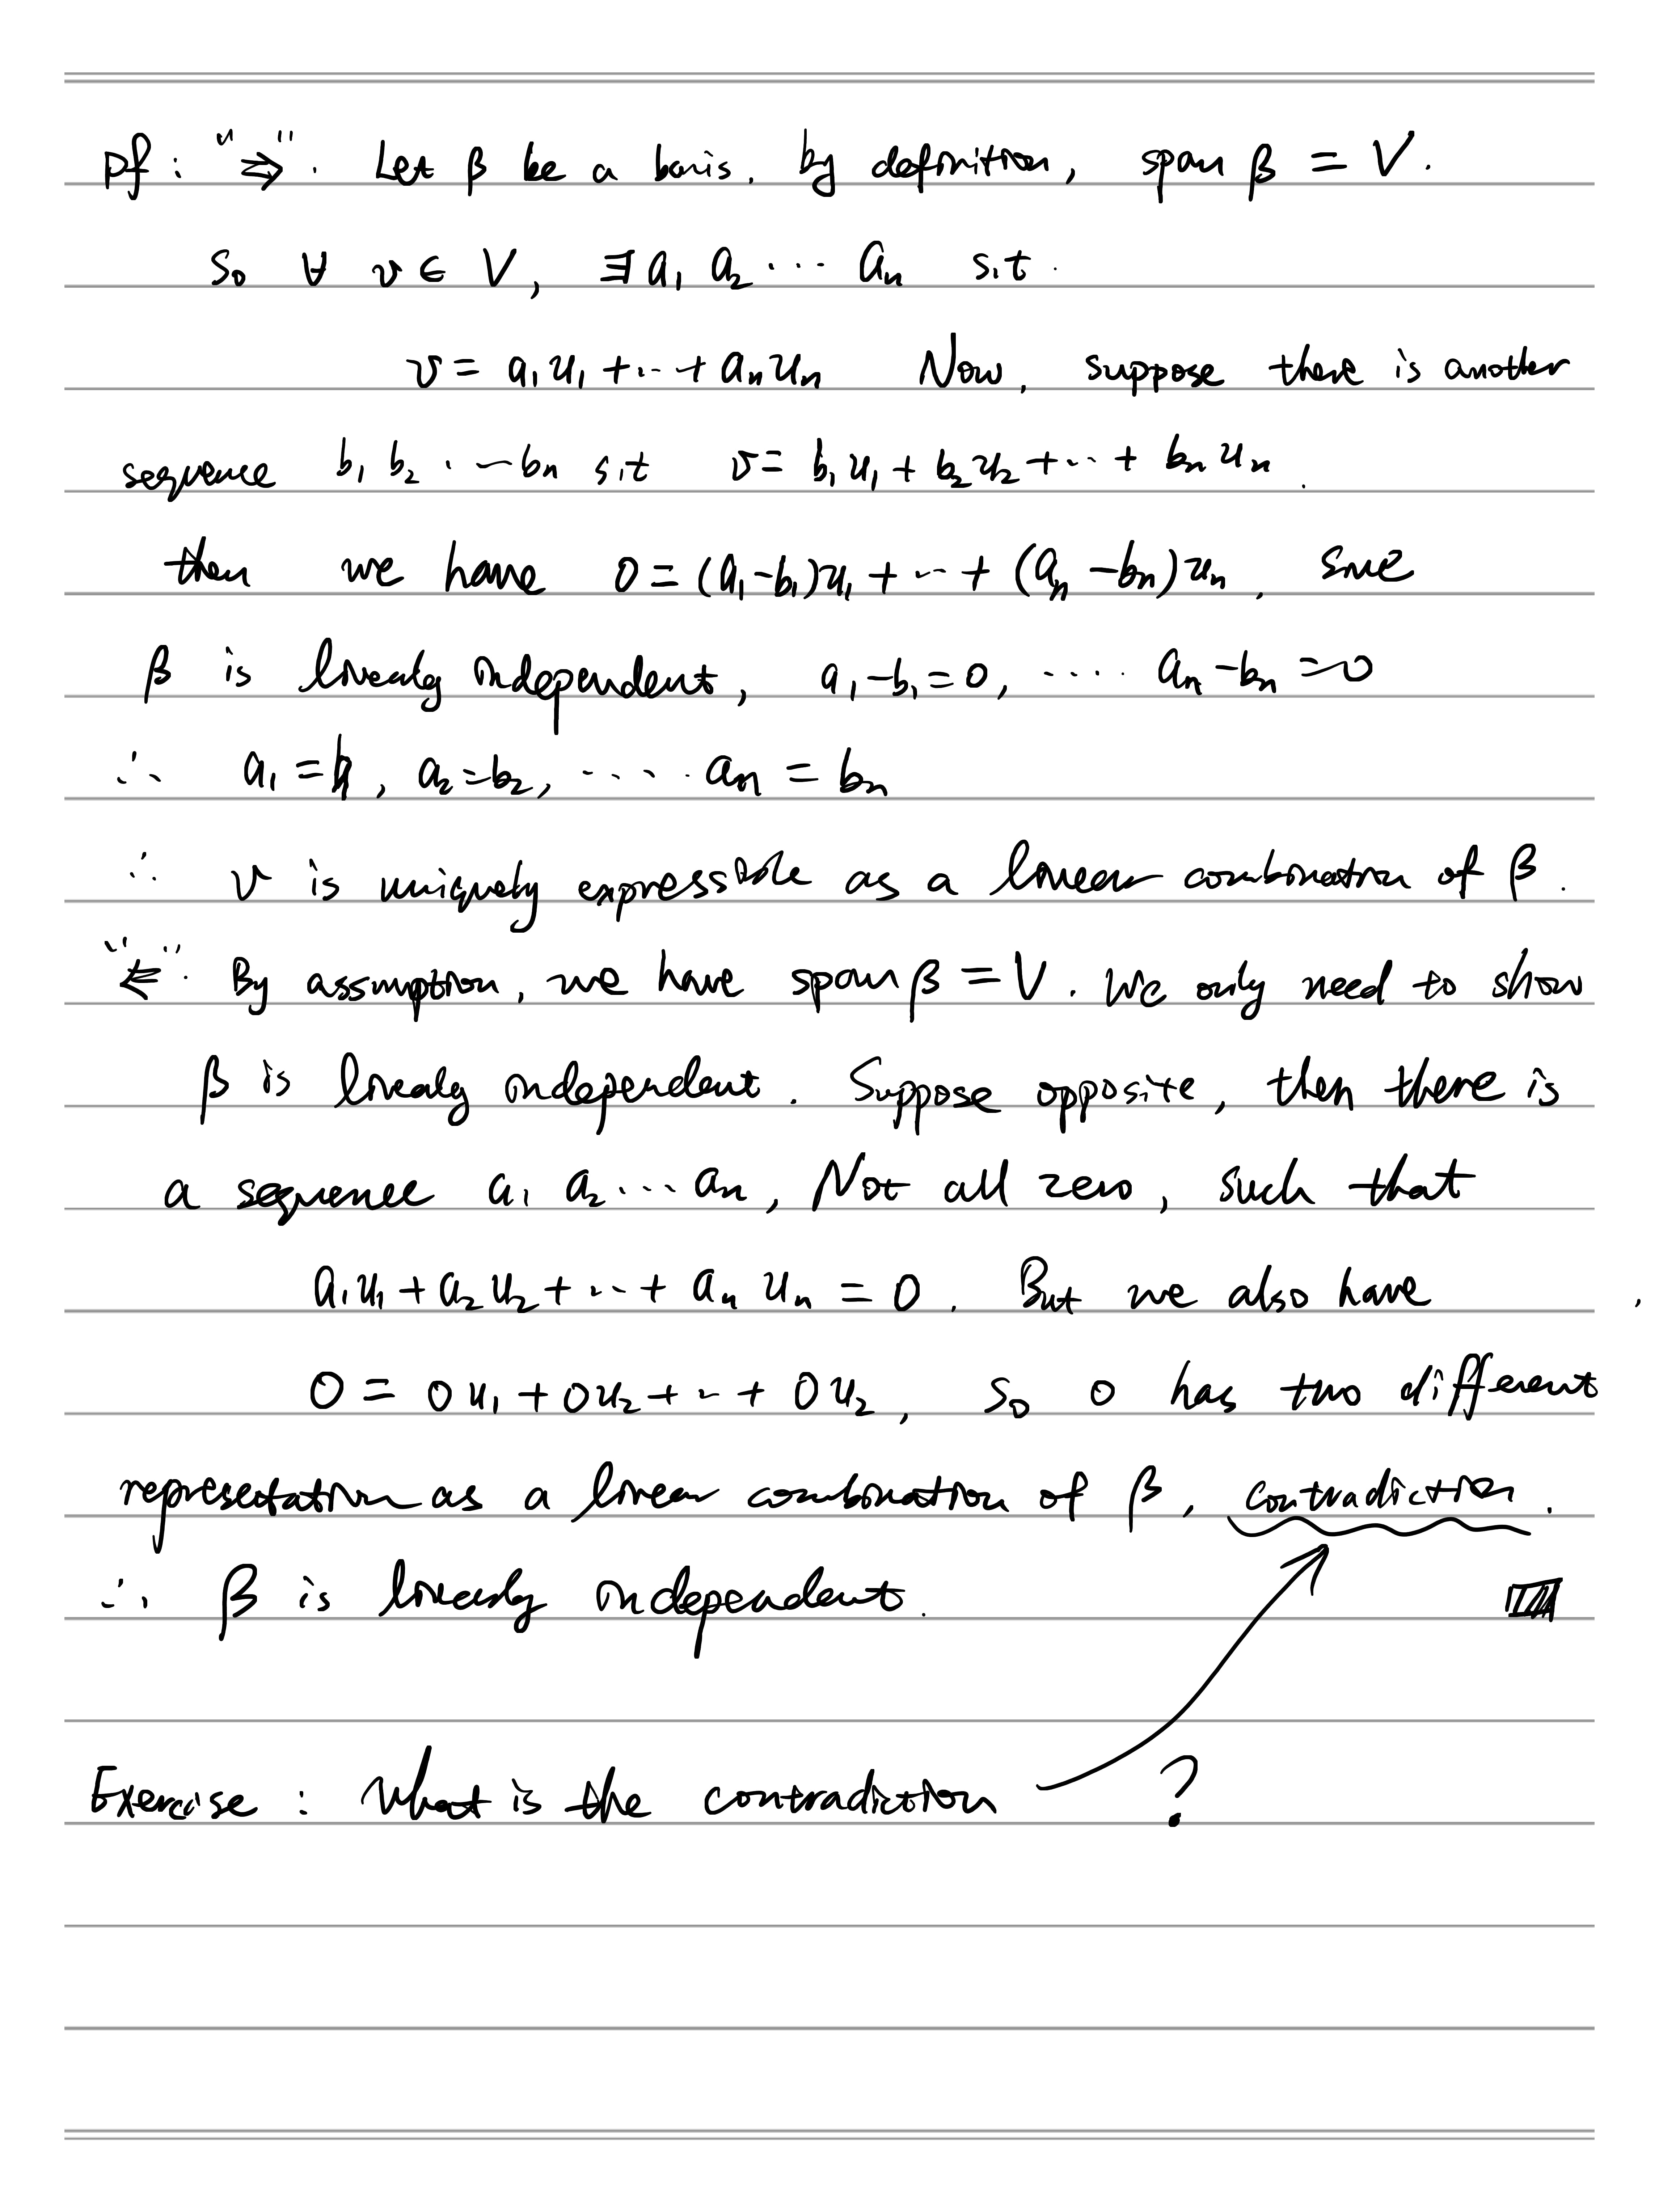 pf : "⇒". Let β be a basis. by definition, span β = V.
So ∀ v ∈ V, ∃ a₁ a₂ ... aₙ s.t.
v = a₁u₁ + ... + aₙuₙ Now, suppose there is another
sequence b₁ b₂ ... bₙ s.t v = b₁u₁ + b₂u₂ + ... + bₙuₙ.
then we have 0 = (a₁-b₁)u₁ + ... + (aₙ-bₙ)uₙ. Since
β is linearly independent, a₁-b₁=0, .... aₙ-bₙ=0
∴ a₁ = b₁, a₂=b₂, ..... aₙ = bₙ
∴ v is uniquely expressible as a linear combination of β.
"⇐". By assumption, we have span β = V. We only need to show
β is linearly independent. Suppose opposite, then there is
a sequence a₁ a₂ ... aₙ, Not all zero, such that
a₁u₁ + a₂u₂ + ... + aₙuₙ = 0. But we also have
0 = 0u₁ + 0u₂ + ... + 0u₂, So 0 has two different
representation as a linear combination of β, contradiction.
∴ β is linearly independent.
Exercise : What is the contradiction ?